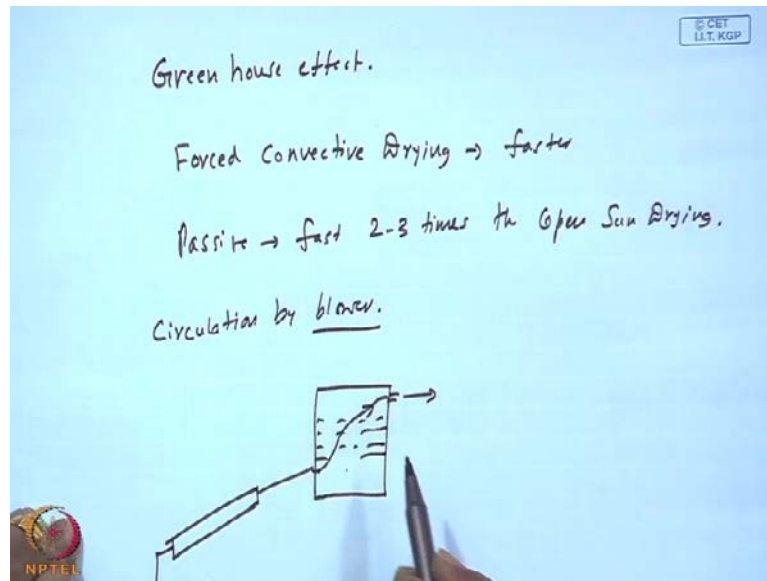 © CET
I.I.T. KGP
Green house effect.
Forced Convective Drying → faster
Passive → fast 2-3 times th Open Sun Drying.
Circulation by blower.
NPTEL